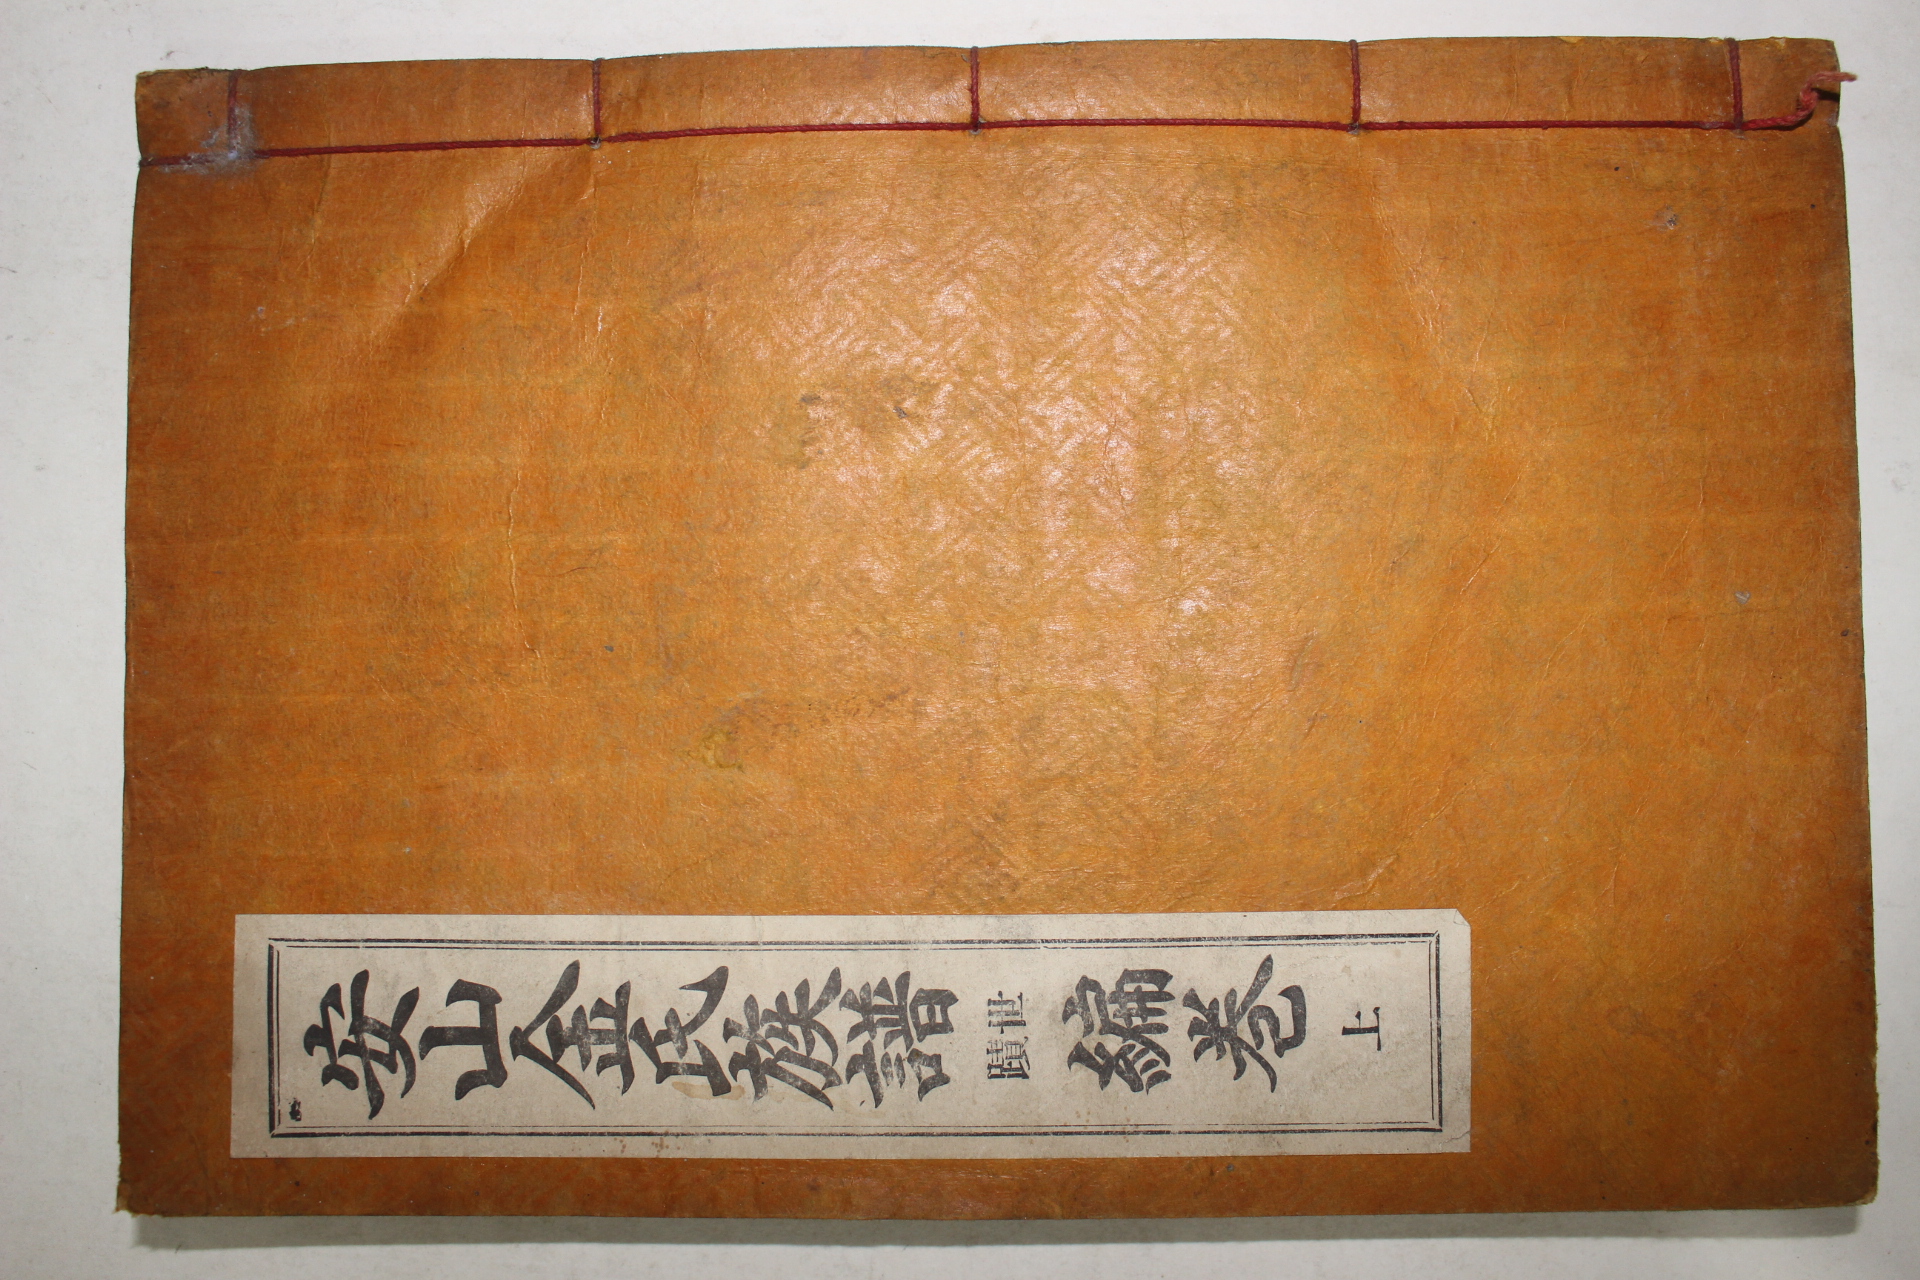 安山金氏族譜 世蹟 編卷 上